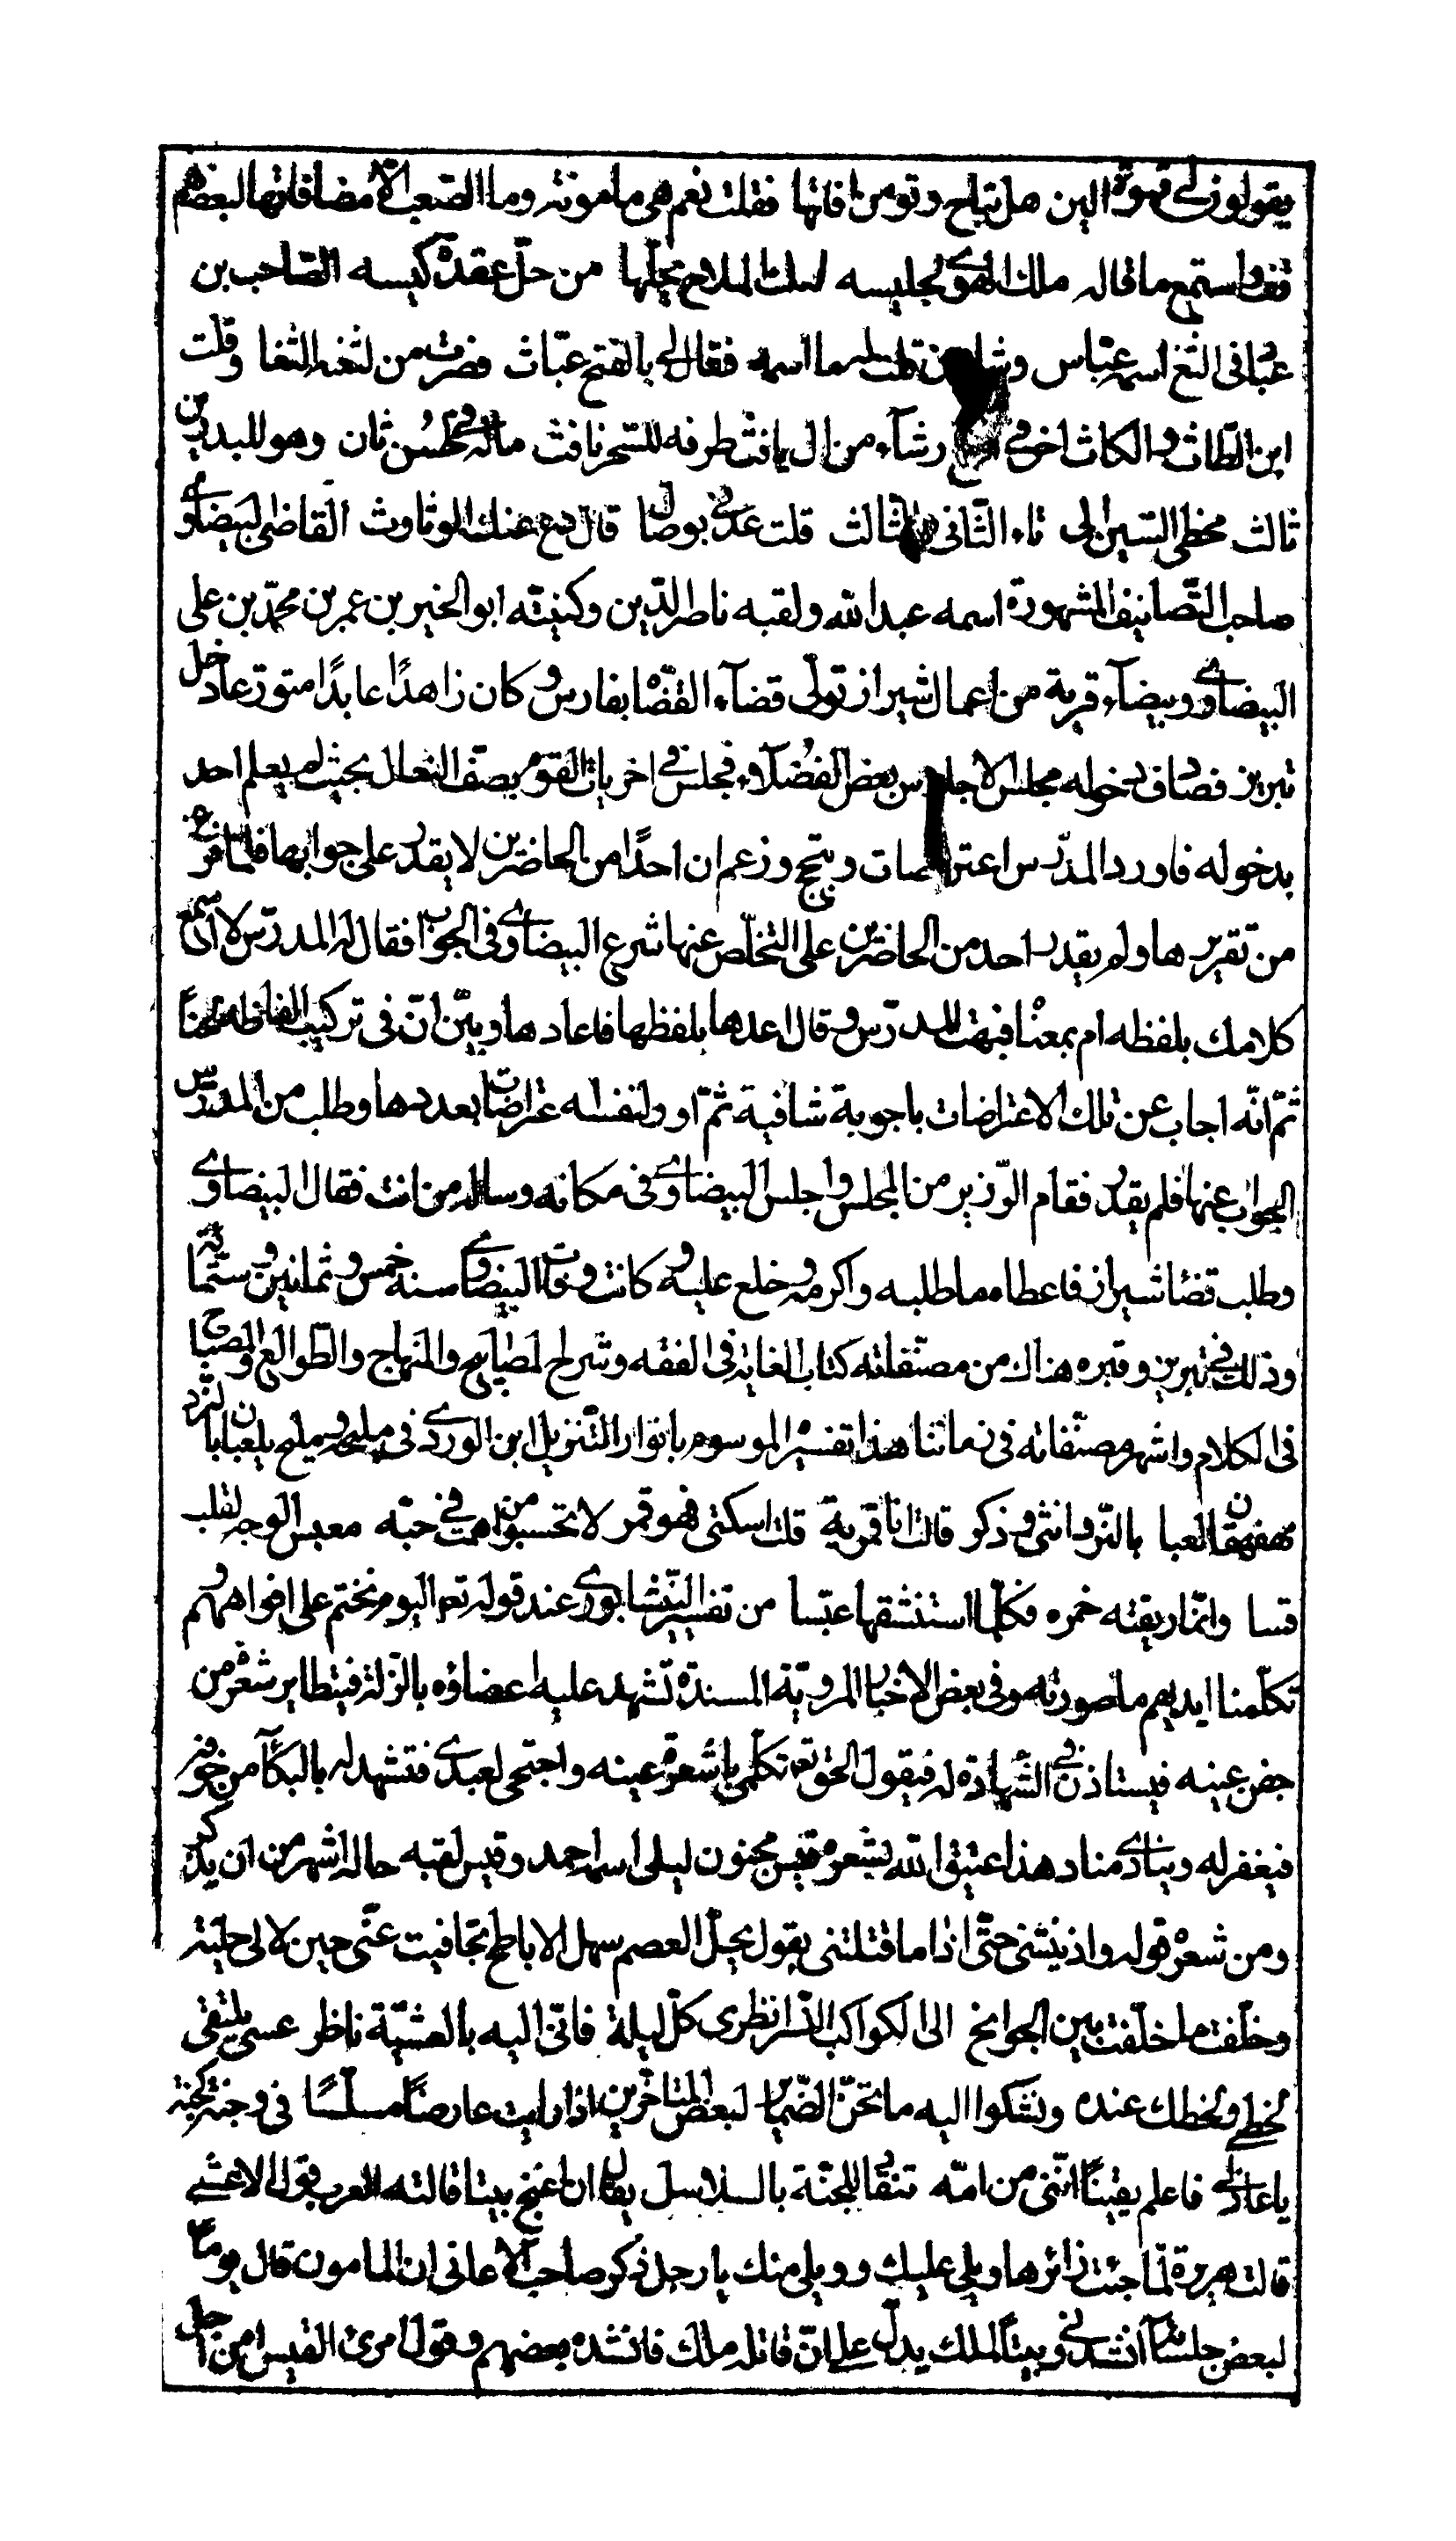 يقولون لي قهوة البن هل تباح وتومن افاتها فقلت نعم هي مامونة وما الصعب الا مضافاتها لبعضهم
قف واستمع ما قاله ملك الهوي لجليسه لملك الملاح تجلها من حل عقدة كيسه الصاحب بن
عباد في الثغ اسمه عباس وشادن قلت له ما اسمه فقال لي بالغنج عباث فصرت من لثغته الثغا وقلت
اين الطاث والكاث اخر في رشاء من ال يافث طرفه للسحر نافث ماله في حسن ثان وهو للبدرين
ثالث مخطي السين الي ثاء الثاني والثالث قلت عدني بوصال قال دع عنك الوثاوث القاضي البيضاوي
صاحب التصانيف المشهورة اسمه عبد الله ولقبه ناصر الدين وكنيته ابو الخير بن عمر بن محمد بن علي
البيضاوي وبيضاء قرية من اعمال شيراز تولي قضاء القضا بفارس وكان زاهدًا عابدًا متورعا دخل
تبريز فصادف دخوله مجلس الاجل بعض الفضلاء فجلس في اخريات القوم بصف النعال بحيث لم يعلم احد
بدخوله فاورد المدرس اعتراضات وتبجح وزعم ان احدًا من الحاضرين لا يقدر علي جوابها فلما فرغ
من تقريرها ولم يقدر احد من الحاضرين علي التخلص عنها شرع البيضاوي في الجواب فقال له المدرس لا اسمع
كلامك بلفظه ام بمعنا فبهت المدرس وقال اعدها بلفظها فاعادها وبين ان في تركيب الفاظه لحنًا
ثم انه اجاب عن تلك الاعتراضات باجوبة شافية ثم اورد لنفسه عتراضات بعددها وطلب من المدرس
الجواب عنها فلم يقدر فقام الوزير من المجلس واجلس البيضاوي في مكانه وساله من انت فقال البيضاوي
وطلب قضا شيراز فاعطاه ما طلبه واكرمه وخلع عليه وكانت وفات البيضاوي سنة خمس وثمانين وستمائه
وذلك في تبريز وقبره هناك من مصنفاته كتاب الغاية في الفقه وشرح المصابيح والمنهاج والطوالع والمصباح
في الكلام واشهر مصنفاته في زماننا هذا تفسير الموسوم بانوار التنزيل ابن الوردي في مليحة ومليح يلعبان بالنرد
مهفهفان لعبا بالنرد انثي وذكر قالت انا قمرية قلت اسكتي فهو قمر لا تحسبوا من همت في حبه معبس الوجه لقلب
قسا وانما ريقته خمره فكلما استنشقها عبسا من تفسير النيشابوري عند قوله تعم اليوم نختم علي افواههم و
تكلمنا ايديهم ما صورته وفي بعض الاخبار المروية المسندة تشهد عليه اعضاؤه بالزلة فيتطاير شعرة من
جفن عينه فيستاذن في الشهادة له فيقول الحق تعم تكلمي يا شعرة عينه واحتجي لعبدي فتشهد له بالبكآ من خوفه
فيغفر له وينادي مناد هذا عتيق الله بشعرة قيس مجنون ليلي اسمه احمد وقيس لقبه حاله اشهر من ان يذكر
ومن شعره قوله واذنيتني حتي اذا ما قتلتني بقول يحل العصم سهل الاباطح تجافيت عني حين لا لي حلية
وخلفت ما خلفت بين الجوانح الي الكواكب النسر انظري كل ليلة فاني اليه بالعشية ناظر عسي يلتقي
لحظي ولحظك عنده ونشكوا اليه ما تخن الضماير لبعض المتاخرين اذا رايت عارضًا مسلسلًا في وجنة كجنة
يا عاذلي فاعلم يقينًا انني من امة تنقاد للجنة بالسلاسل يقال ان اغنج بيتا قالته العرب قول الاعشي
قالت هريرة لما جئت زائرها ويلي عليك وويلي منك يا رجل ذكر صاحب الاغاني ان المامون قال يومًا
لبعض جلسائه انشدني بيتًا لملك يدل علي ان قائله ملك فانشده بعضهم وقول امرئ القيس امن اجل